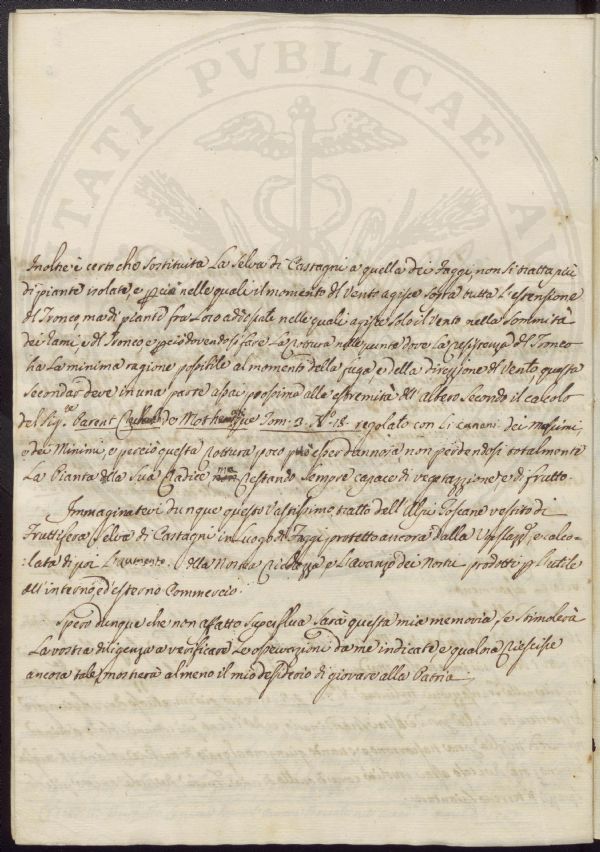 TATI PVBLICAE
Inoltre è certo che sostituita La Selva di Castagni a quella dei Faggi, non si tratta più
di piante isolate, e perciò nelle quali il momento del Vento agisce sopra tutta L'estensione
del Tronco, ma di piante fra Loro addossate nelle quali agisce solo il Vento nella Sommità
dei Rami, e del Tronco e perciò dovendosi fare La rottura nelle punto dove la resistenza del Tronco
ha La minima ragione possibile al momento della fuga, e della direzione del Vento, questa
secondo deve in una parte assai prossima alle estremità dell'albero Secondo il calcolo
del Sig.re Parent de Mathematique Tom. 3. N.o 18. regolato con Li canoni dei Massimi,
e dei Minimi, e perciò questa Rottura poco può esser dannosa non perdendosi totalmente
La Pianta della Sua Radice ma restando Sempre capace di vegetazzione, e di frutto.
Immaginatevi dunque questo Vastissimo tratto dell'Alpi Toscane vestito di
Fruttifera Selva di Castagni in Luogo di Faggi protetto ancora dalla e calco-
:lata di poi L'aumento della Nostra Ricchezza e L'avanzo dei Nostri prodotti per L'utile
all'interno, ed'esterno Commercio.
Spero dunque che non affatto Superflua Sarà questa mia memoria, se Stimolerà
La vostra diligenza a verificare Le osservazioni da me indicate e qualora riescisse
ancora tale, mostrerà almeno il mio desiderio di giovare alla Patria.